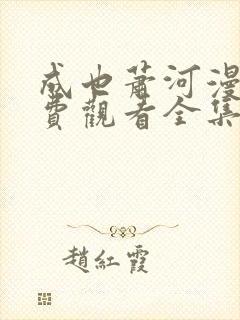 成也萧河漫
費觀看全集
趙紅霞